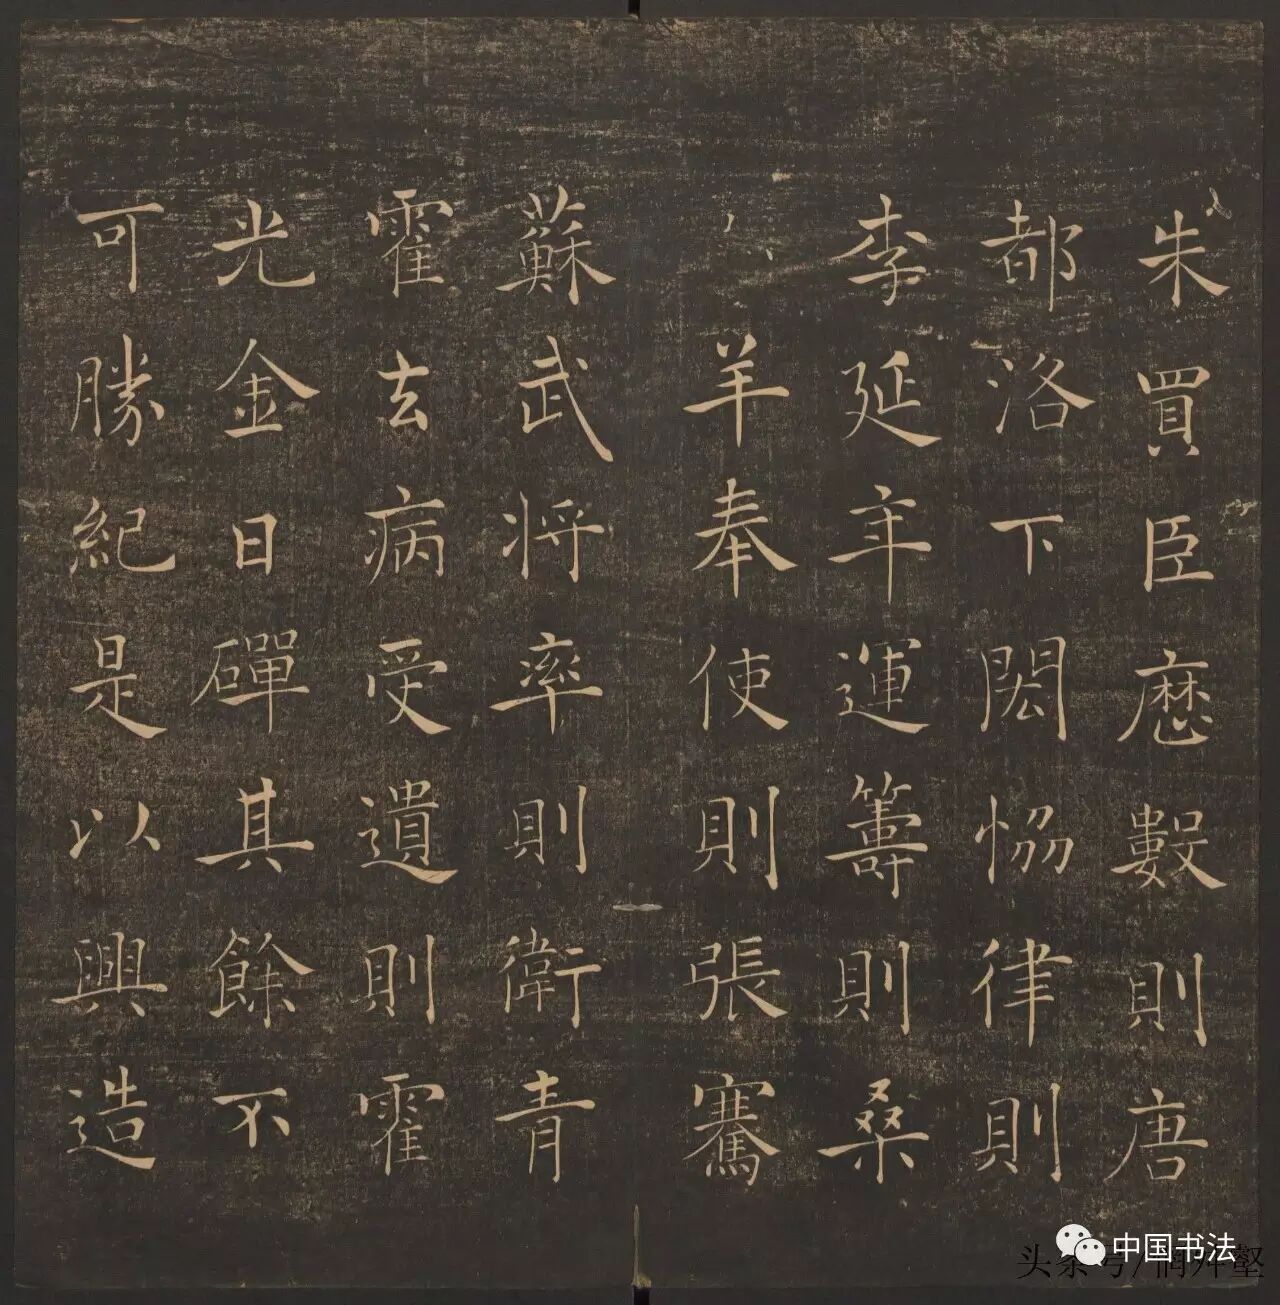 朱買臣厯數則唐
都洛下閎恊律則
李延年運籌則桑
羊奉使則張騫
蘇武将率則衛青
霍去病受遺則霍
光金日磾其餘不
可勝紀是以興造
中国书法
头条号/